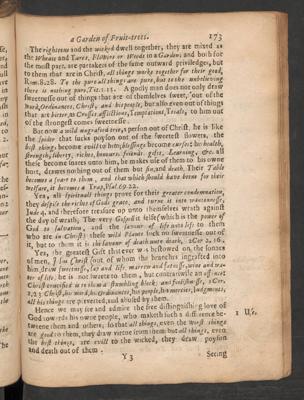 a Garden of Fruit-trees. 173
The righteous and the wicked dwell together, they are mixed as
the Wheate and Tares, Flowers or Weeds in a Garden: and both for
the most part, are partakers of the same outward priviledges, but
to them that are in Christ, all things worke together for their good,
Rom. 8.28. To the pure all things are pure, but to the unbelieving
there is nothing pure, Tit. 1. 15. A godly man does not only draw
sweetnesse out of things that are of themselves sweet, out of the
word, Ordinances, Christ, and his people, but also even out of things
that are bitter, as Crosses afflictions, Temptations, Trials, to him out
of the strongest comes sweetnesse.
But now a wild ungrafted tree, a person out of Christ, he is like
the spider that sucks poyson out of the sweetest flowers, the
best things become evill to him; blessings become curses; his health,
strength, liberty, riches, honours, friends, gifts, Learning, &c. all
these become snares unto him, he makes use of them to his owne
hurt, drawes nothing out of them but sin, and death. Their Table
becomes a snare to them, and that which should have been for their
welfare, it becomes a Trap, Psal. 69.22.
Yea, all spirituall things prove for their greater condemnation,
they despise the riches of Gods grace, and turne it into wantonnesse,
Jude 4. and therefore treasure up unto themselves wrath against
the day of wrath; The very Gospell it selfe (which is the power of
God to salvation, and the savour of life unto life to them
who are in Christ) these wild Plants suck no sweetnesse out of
it, but to them it is the savour of death unto death, 2 Cor. 2.16.
Yea, the greatest Gift that ever was bestowed on the sonnes
of men, Jesus Christ (out of whom the branches ingrafted into
him, draw sweetnesse, sap and life, marrow and fatnesse, wine and wa-
ter of life) he is not sweete to them, but contrariwise an
Christ crucified is to them a stumbling block, and foolishnesse, 1 Cor.
1.23 Christ, his word, his ordinances, his people, his mercies, judgments,
all his things are perverted, and abused by them.
Hence we may see and admire the free distinguishing love of
God towards his owne people, who maketh such a difference be-
tweene them and others; so that all things, even the worst things
are good to them, they draw vertue from them: but all things, even
the best things, are evill to the wicked, they draw poyson
and death out of them.
1 Use.
Y 3 Seeing